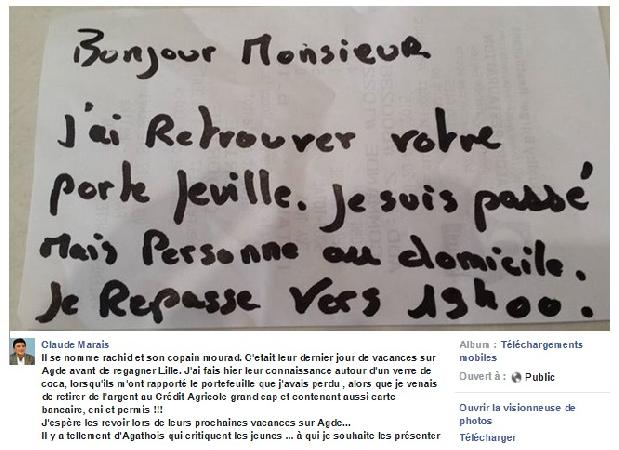 Bonjour Monsieur
J'ai Retrouver votre
porte feuille. Je suis passé
Mais Personne au domicile.
Je Repasse Vers 19h00.
Claude Marais
Il se nomme rachid et son copain mourad. C'etait leur dernier jour de vacances sur
Agde avant de regagner Lille. J'ai fais hier leur connaissance autour d'un verre de
coca, lorsqu'ils m'ont rapporté le portefeuille que j'avais perdu , alors que je venais
de retirer de l'argent au Crédit Agricole grand cap et contenant aussi carte
bancaire, cni et permis !!!
J'espère les revoir lors de leurs prochaines vacances sur Agde...
Il y a tellement d'Agathois qui critiquent les jeunes ... à qui je souhaite les présenter
Album : Téléchargements
mobiles
Ouvert à : Public
Ouvrir la visionneuse de
photos
Télécharger